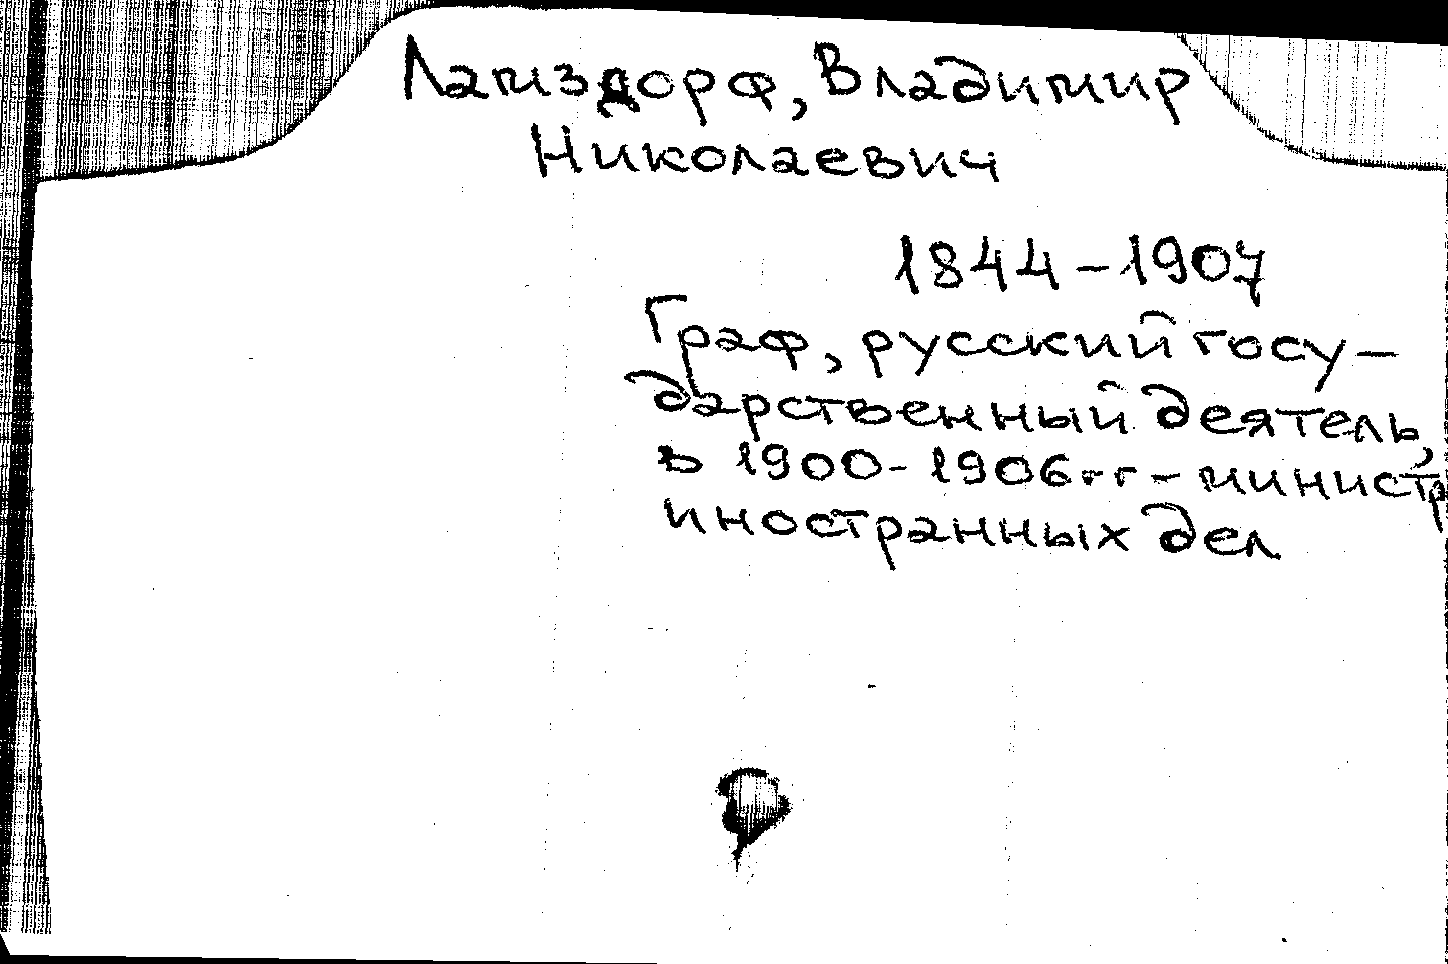 Ламздорф, Владимир
Николаевич
1844-1907
Граф, русский госу-
дарственный деятель,
в 1900-1906 гг - министр
иностранных дел